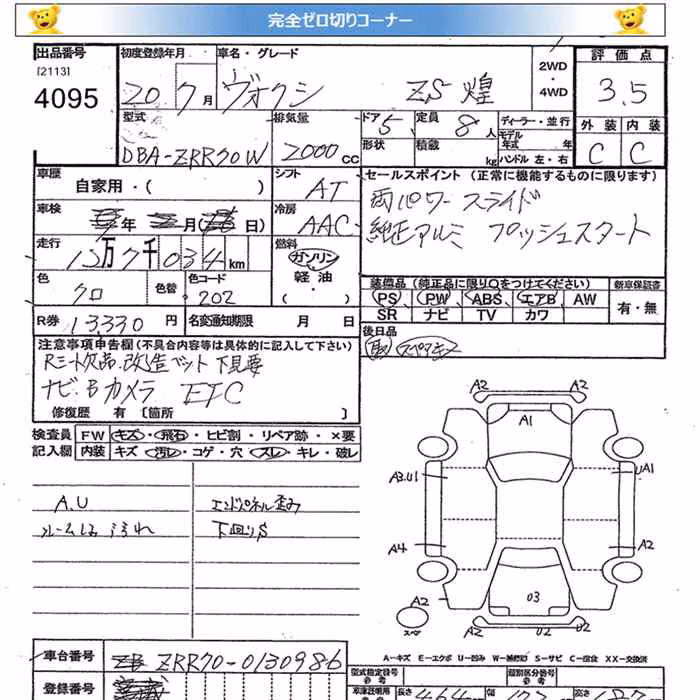 完全ゼロ切りコーナー
出品番号 [2113] 4095
初度登録年月 20 7月
車名・グレード ヴォクシ ZS 煌
2WD・4WD
評価点 3.5
外装 C 内装 C
型式 DBA-ZRR70W
排気量 2000cc
ドア 5 形状
定員 8人 積載 kg
ディーラー・並行
モデル年式 年
ハンドル 左・右
車歴 自家用・( )
シフト AT
セールスポイント (正常に機能するものに限ります)
両パワースライド
純正アルミ プッシュスタート
車検 年 月( 日)
冷房 AAC
走行 12万7千034km
燃料 ガソリン 軽油・( )
色 クロ 色替
色コード 202
装備品 (純正品に限り○をつけてください)
PS PW ABS エアB AW
SR ナビ TV カワ
新車保証書 有・無
R券 13,330円
名変通知期限 月 日
後日品
注意事項申告欄(不具合内容等は具体的に記入して下さい)
Rミート欠品.改造マット 下見要
ナビ.Bカメラ ETC
修復歴 有 [箇所 ]
検査員記入欄
FW キズ・飛石・ヒビ割・リペア跡・×要
内装 キズ・汚レ・コゲ・穴・スレ・キレ・破レ
A.U エンドパネル歪み
ルーム内 汚れ 下回りS
A2 A2
A1
A3.U1 UA1
A4 A2
03
A2 U2 U2
スペア
車台番号 ZRR70-0130986
登録番号
A-キズ E-エクボ U-凹み W-補修跡 S-サビ C-腐食 XX-交換済
型式指定番号 参考
類別区分番号 参考
長さ
高さ